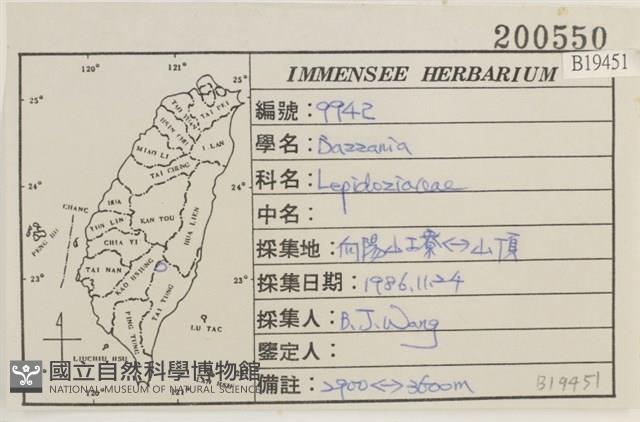 200550
B19451
IMMENSEE HERBARIUM
編號：9942
學名：Bazzania
科名：Lepidoziaceae
中名：
採集地：向陽山工寮<->山頂
採集日期：1986.11.24
採集人：B.J.Wang
鑒定人：
備註：2900<->3600m
B19451
120°
121°
25°
25°
TAO YUAN
TAI PEI
HSIN CHU
I LAN
MIAO LI
TAI CHUNG
24°
24°
CHANG HUA
NAN TOU
HUA LIEN
YUN LIN
PENG HU
CHIA YI
TAI NAN
KAO HSIUNG
23°
23°
TAI TUNG
PING TUNG
LU TAO
LIUCHIU HSU
120°
121°
國立自然科學博物館
NATIONAL MUSEUM OF NATURAL SCIENCE